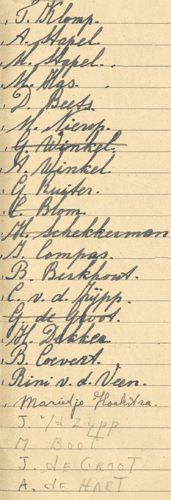 T. Klomp.
A. Hapel.
M. Hapel.
M. Has.
D. Beets.
M. Nierop.
G. Winkel
A. Winkel
G. Ruiter.
C. Blom.
M. Schekkerman
J. Compas.
B. Berkhout.
C. v. d. Zijpp.
G. de Groot.
H. Dekker
B. Coevert.
Rini v. d. Veen.
Marietje
J. v/d Zijpp
M. BOOT
J. de GROOT
A. de HART